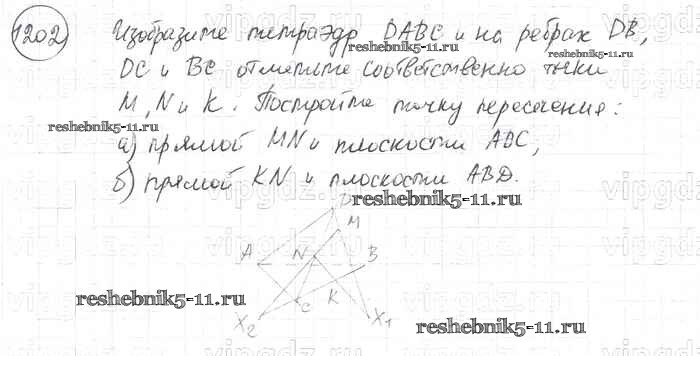 1202
Изобразите тетраэдр DABC и на ребрах DB,
reshebnik5-11.ru
reshebnik5-11.ru
DC и BC отметьте соответственно точки
M, N и K. Постройте точку пересечения:
reshebnik5-11.ru
а) прямой MN и плоскости ABC,
б) прямой KN и плоскости ABD.
reshebnik5-11.ru
D
M
A N B
reshebnik5-11.ru
C K
X2 X1
reshebnik5-11.ru
vipgdz.ru